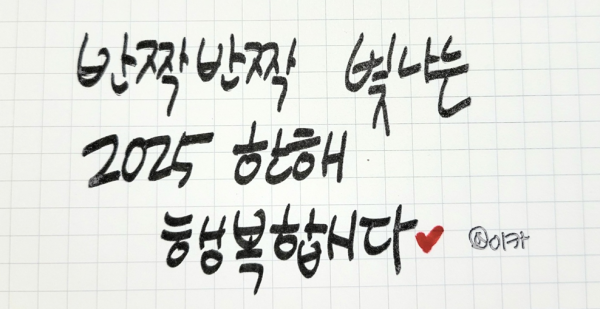 반짝반짝 빛나는
2025 한해
행복합시다♥ @이카